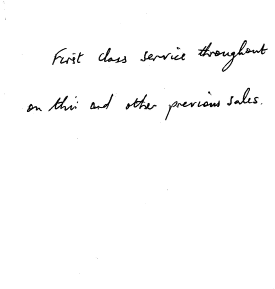 First class service throughout
on this and other previous sales.